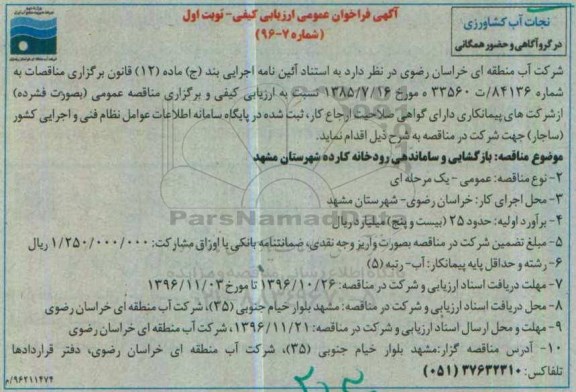 آگهی فراخوان عمومی ارزیابی کیفی- نوبت اول
(شماره ۷-۹۶)
نجات آب کشاورزی
در گرو آگاهی و حضور همگانی
شرکت آب منطقه ای خراسان رضوی در نظر دارد به استناد آئین نامه اجرایی بند (ج) ماده (۱۲) قانون برگزاری مناقصات به
شماره ۸۴۱۳۶/ت ۳۳۵۶۰ ه مورخ ۱۳۸۵/۷/۱۶ نسبت به ارزیابی کیفی و برگزاری مناقصه عمومی (بصورت فشرده)
از شرکت های پیمانکاری دارای گواهی صلاحیت ارجاع کار، ثبت شده در پایگاه سامانه اطلاعات عوامل نظام فنی و اجرایی کشور
(ساجار) جهت شرکت در مناقصه به شرح ذیل اقدام نماید.
موضوع مناقصه: بازگشایی و ساماندهی رودخانه کارده شهرستان مشهد
۲- نوع مناقصه: عمومی - یک مرحله ای
۳- محل اجرای کار: خراسان رضوی- شهرستان مشهد
۴- برآورد اولیه: حدود ۲۵ (بیست و پنج) میلیارد ریال
ParsNamadData
۵- مبلغ تضمین شرکت در مناقصه بصورت واریز وجه نقدی، ضمانتنامه بانکی یا اوراق مشارکت: ۱/۲۵۰/۰۰۰/۰۰۰ ریال
۶- رشته و حداقل پایه پیمانکار: آب- رتبه (۵)
۷- مهلت دریافت اسناد ارزیابی و شرکت در مناقصه: ۱۳۹۶/۱۰/۲۶ تا مورخ ۱۳۹۶/۱۱/۰۳
۸- محل دریافت اسناد ارزیابی و شرکت در مناقصه: مشهد بلوار خیام جنوبی (۳۵)، شرکت آب منطقه ای خراسان رضوی
۹- مهلت و محل ارسال اسناد ارزیابی و شرکت در مناقصه: ۱۳۹۶/۱۱/۲۱، شرکت آب منطقه ای خراسان رضوی
۱۰- آدرس مناقصه گزار: مشهد بلوار خیام جنوبی (۳۵)، شرکت آب منطقه ای خراسان رضوی، دفتر قراردادها
تلفاکس: ۳۷۶۳۲۳۱۰ (۰۵۱)
۹۶۲۱۱۴۷۴/م